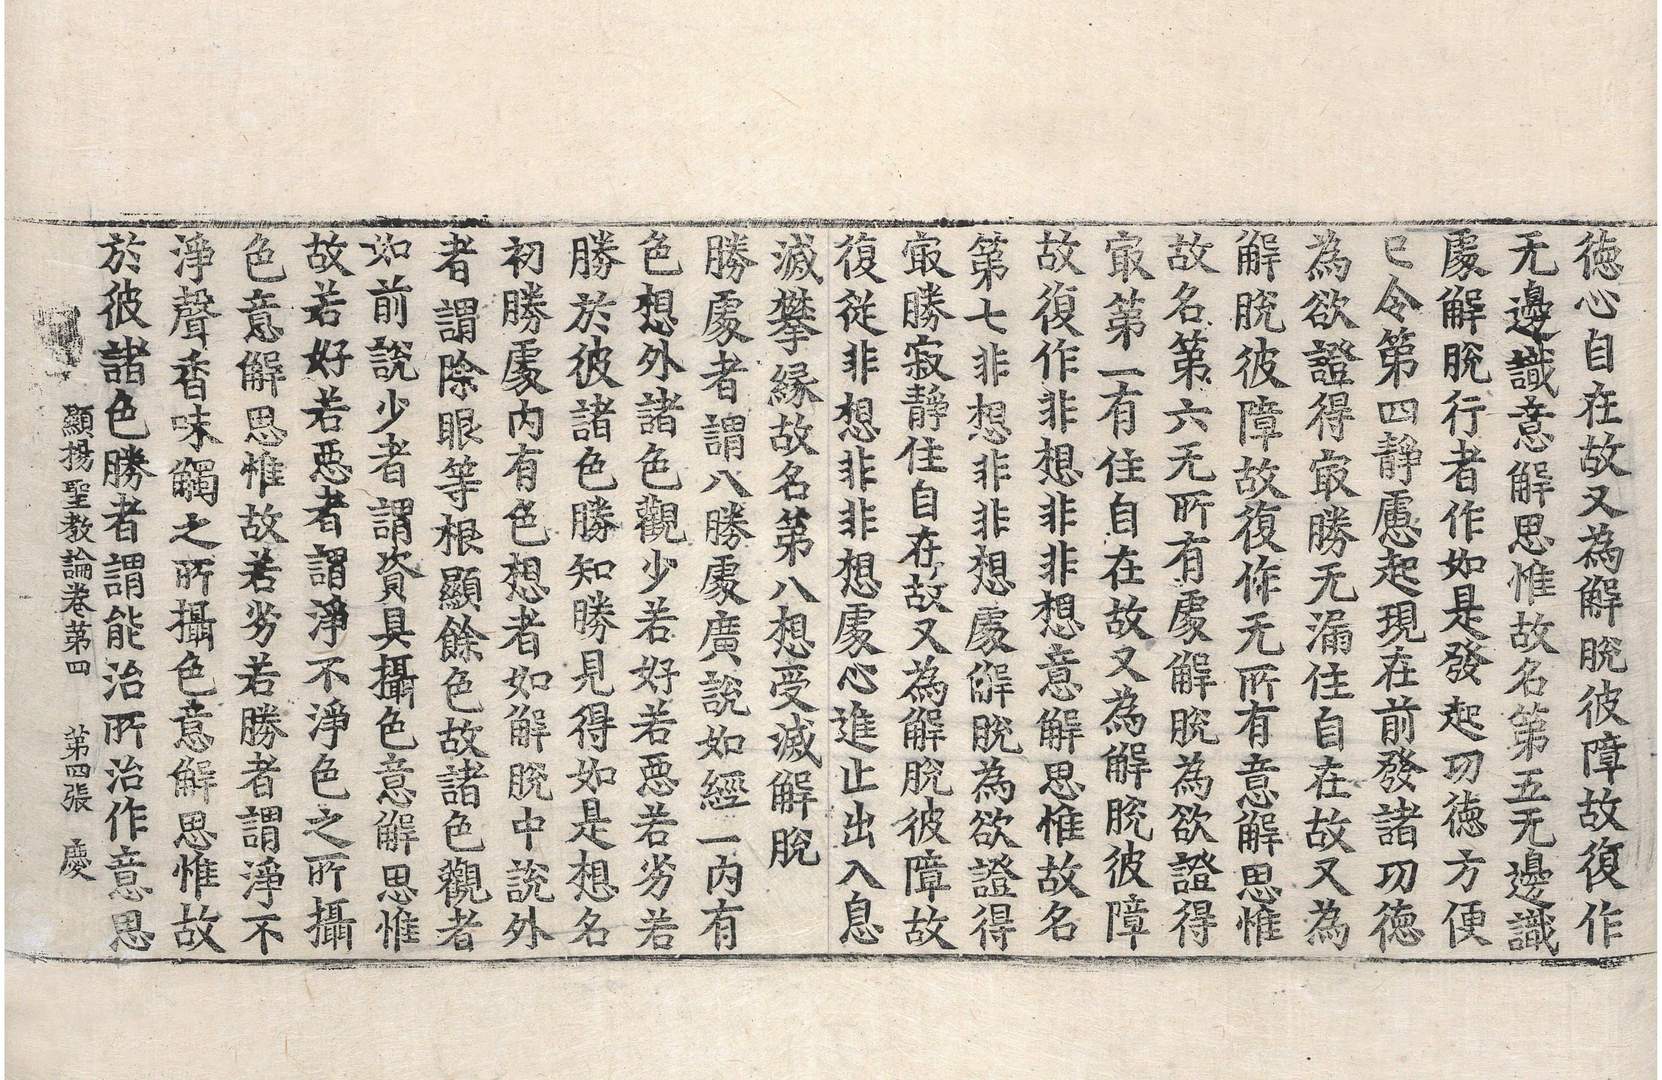 德心自在故又為解脫彼障故復作
无邊識意解思惟故名第五无邊識
處解脫行者作如是發起功德方便
已令第四靜慮起現在前發諸功德
為欲證得㝡勝无漏住自在故又為
解脫彼障故復作无所有意解思惟
故名第六无所有處解脫為欲證得
㝡第一有住自在故又為解脫彼障
故復作非想非非想意解思惟故名
第七非想非非想處解脫為欲證得
㝡勝寂靜住自在故又為解脫彼障故
復從非想非非想處心進止出入息
滅攀緣故名第八想受滅解脫
勝處者謂八勝處廣說如經一內有
色想外諸色觀少若好若惡若劣若
勝於彼諸色勝知勝見得如是想名
初勝處內有色想者如解脫中說外
者謂除眼等根顯餘色故諸色觀者
如前說少者謂資具攝色意解思惟
故若好若惡者謂淨不淨色之所攝
色意解思惟故若劣若勝者謂淨不
淨聲香味觸之所攝色意解思惟故
於彼諸色勝者謂能治所治作意思
顯揚聖教論卷第四　第四張　慶